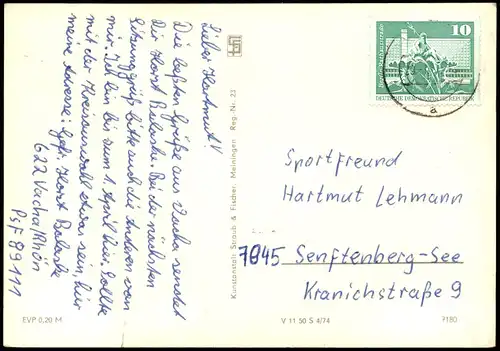 Lieber Hartmut!
Die besten Grüße aus Vacha sendet
Dir Horst Balaske. Bei der nächsten
Sitzung grüß bitte auch die Anderen von
mir. Ich bin bis zum 1. April hier. Sollte
mit der Kreisauswahl etwas sein, hier
meine Adresse: Gefr. Horst Balaske
622 Vacha/Rhön
PsF 89111
EVP 0,20 M
Kunstanstalt Straub & Fischer, Meiningen Reg.-Nr. 23
V 11 50 S 4/74
7180
10
DEUTSCHE DEMOKRATISCHE REPUBLIK
a
Sportfreund
Hartmut Lehmann
7845 Senftenberg-See
Kranichstraße 9